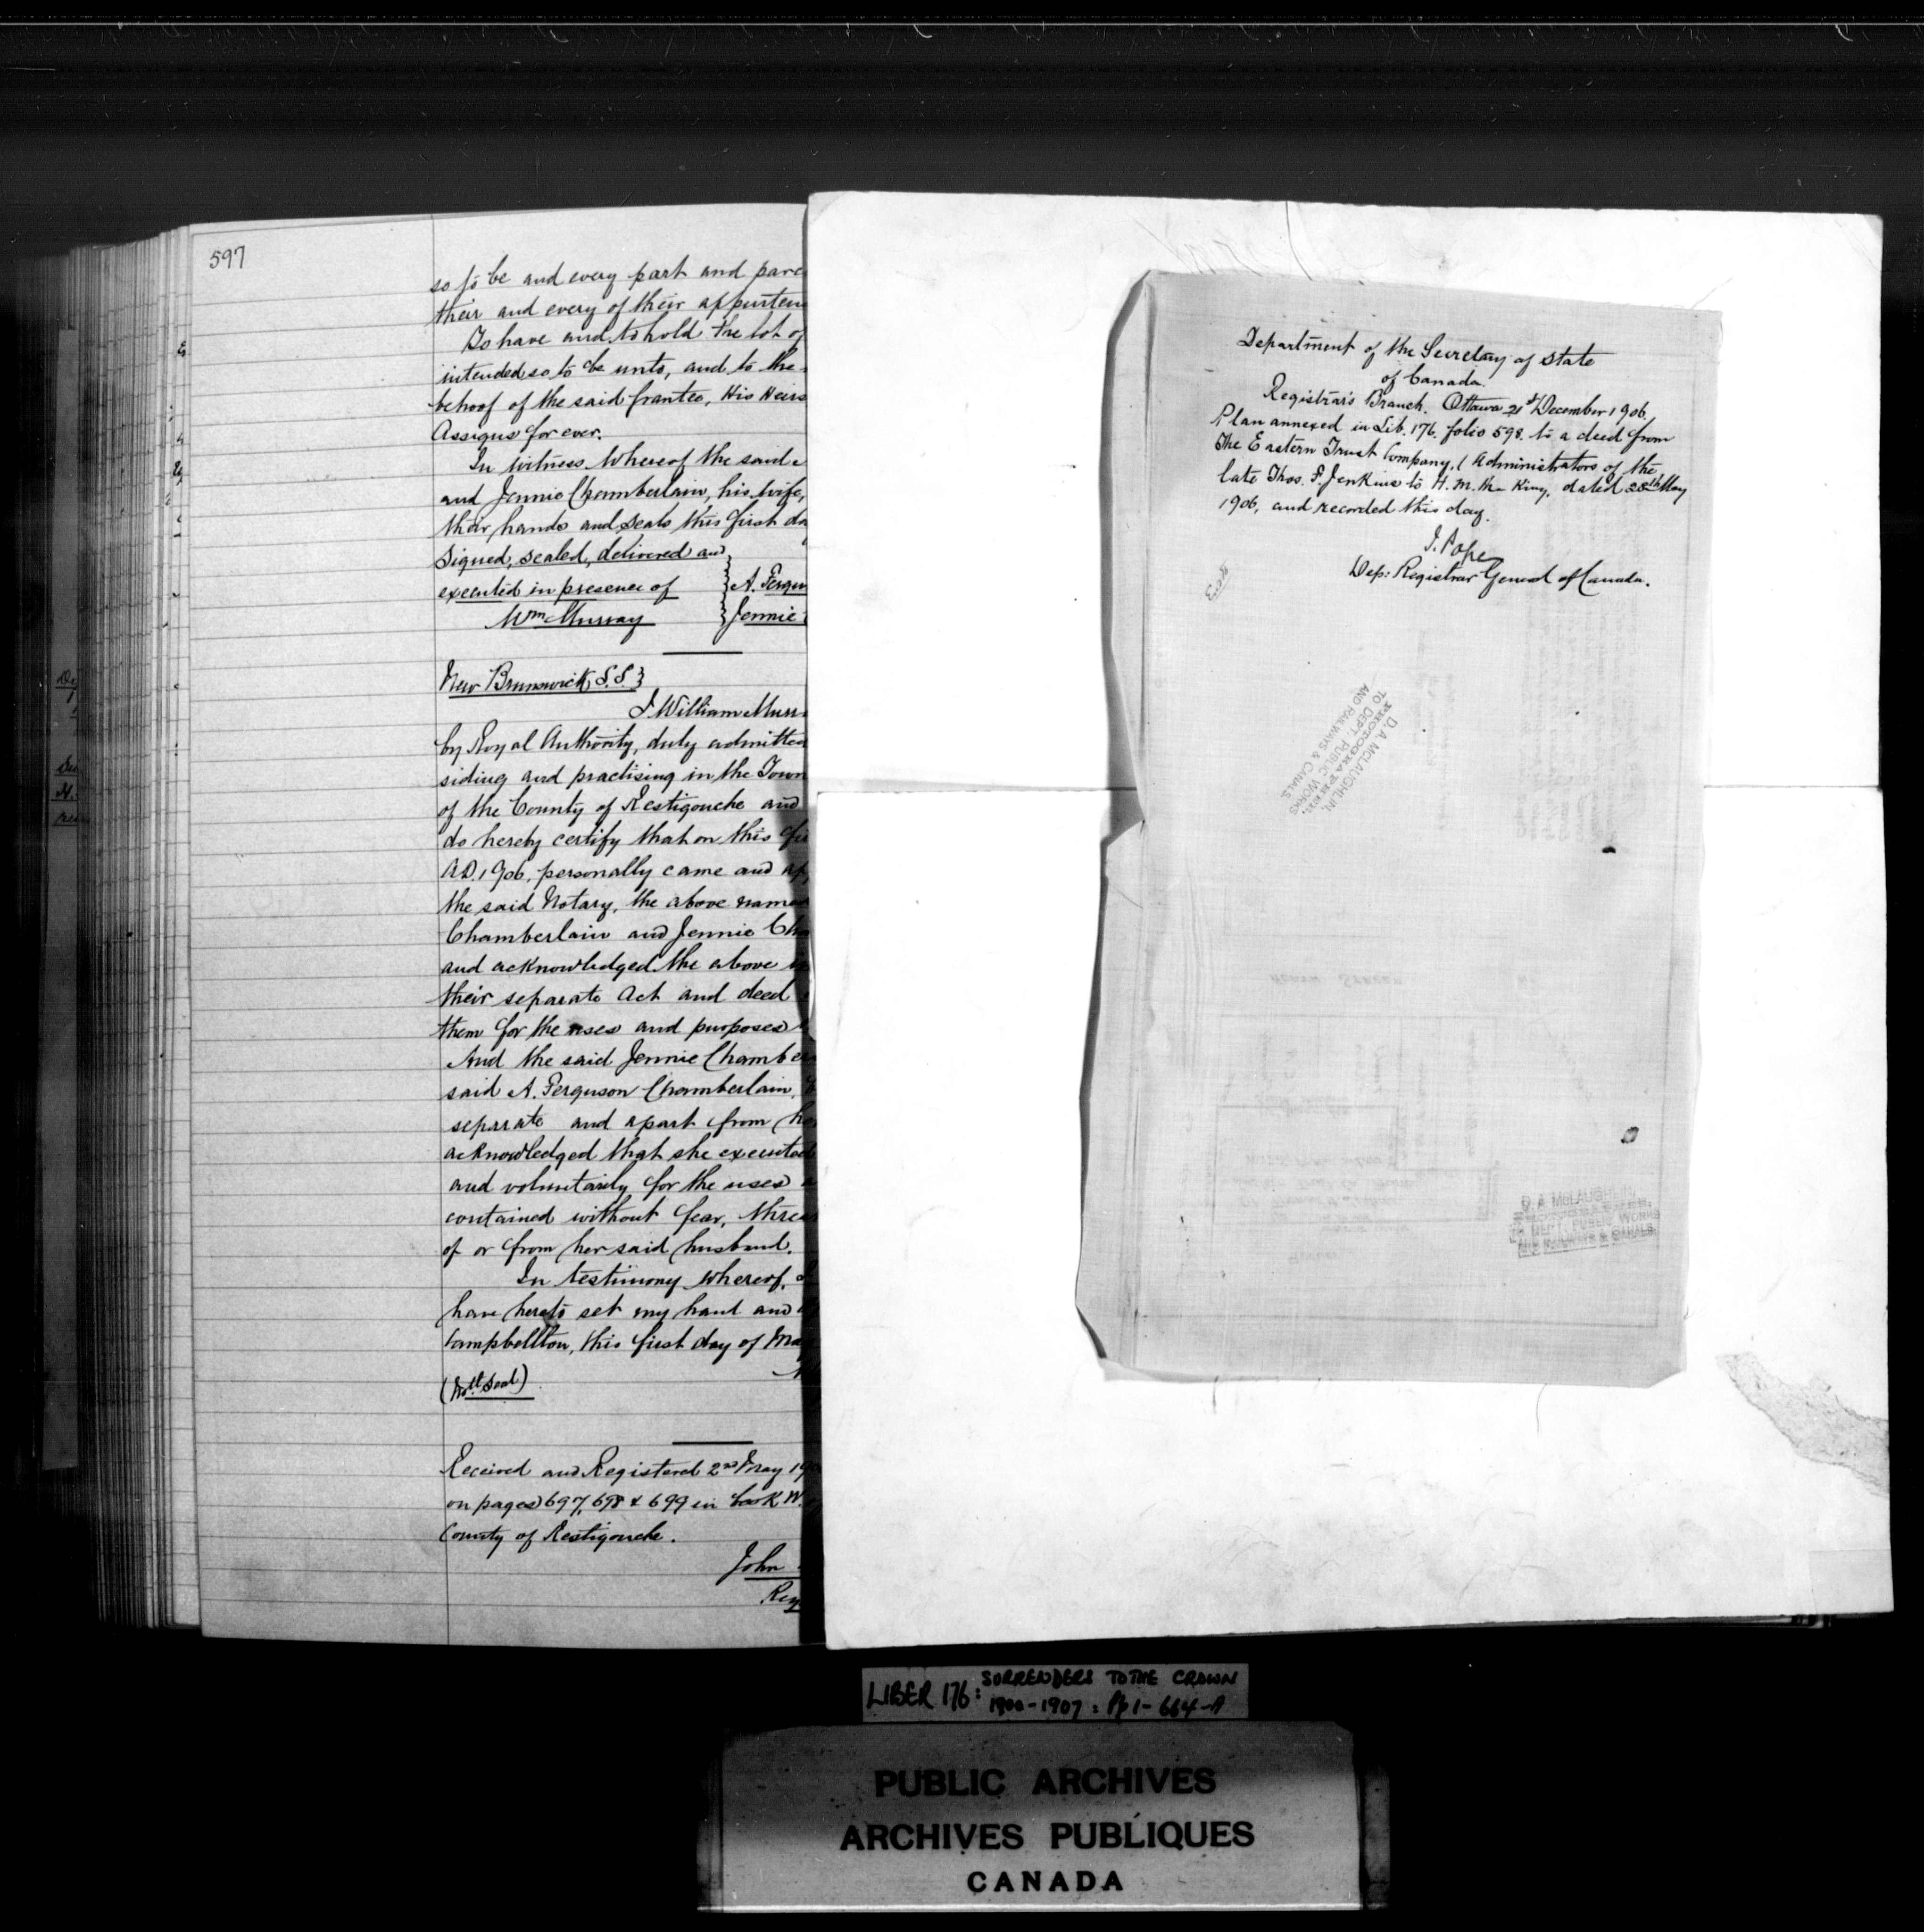 597
so to be and every part and parc
their and every of their appurten
To have and to hold the lot of
intended so to be unto, and to the
behoof of the said Grantee, His Heirs
Assigns for ever.
In witness whereof the said
and Jennie Chamberlain, his wife,
their hands and seals this first da
Signed, sealed, delivered and
executed in presence of
A. Fergus
Wm Murray
Jennie
New Brunswick S.S.
I William Murr
by Royal Authority, duly admitted
siding and practising in the Town
of the County of Restigouche and
do hereby certify that on this fir
A.D. 1906, personally came and ap
the said Notary, the above named
Chamberlain and Jennie Cha
and acknowledged the above i
their separate Act and deed
them for the uses and purposes
And the said Jennie Chamber
said A. Ferguson Chamberlain,
separate and apart from he
acknowledged that she executed
and voluntarily for the uses a
contained without fear, threa
of or from her said husband.
In testimony whereof, I
have hereto set my hand and
Campbellton, this first day of Ma
(Notl Seal)
Received and Registered 2nd May 190
on pages 697, 698 & 699 in book W.
County of Restigouche.
John
Reg
Department of the Secretary of State
of Canada.
Registrar's Branch. Ottawa 21st December 1906.
Plan annexed in Lib. 176. folio 598. to a deed from
The Eastern Trust Company, (Administrators of the
late Thos. F. Jenkins to H. M. the King, dated 28th May
1906, and recorded this day.
J. Pope
Dep: Registrar General of Canada.
D. A. McLAUGHLIN,
PHOTOGRAPHER,
TO DEPT. PUBLIC WORKS
AND RAILWAYS & CANALS.
D. A. McLAUGHLIN,
TO DEPT. PUBLIC WORKS
AND RAILWAYS & CANALS.
LIBER 176: SURRENDERS TO THE CROWN
1900-1907: Pp 1-664-A
PUBLIC ARCHIVES
ARCHIVES PUBLIQUES
CANADA